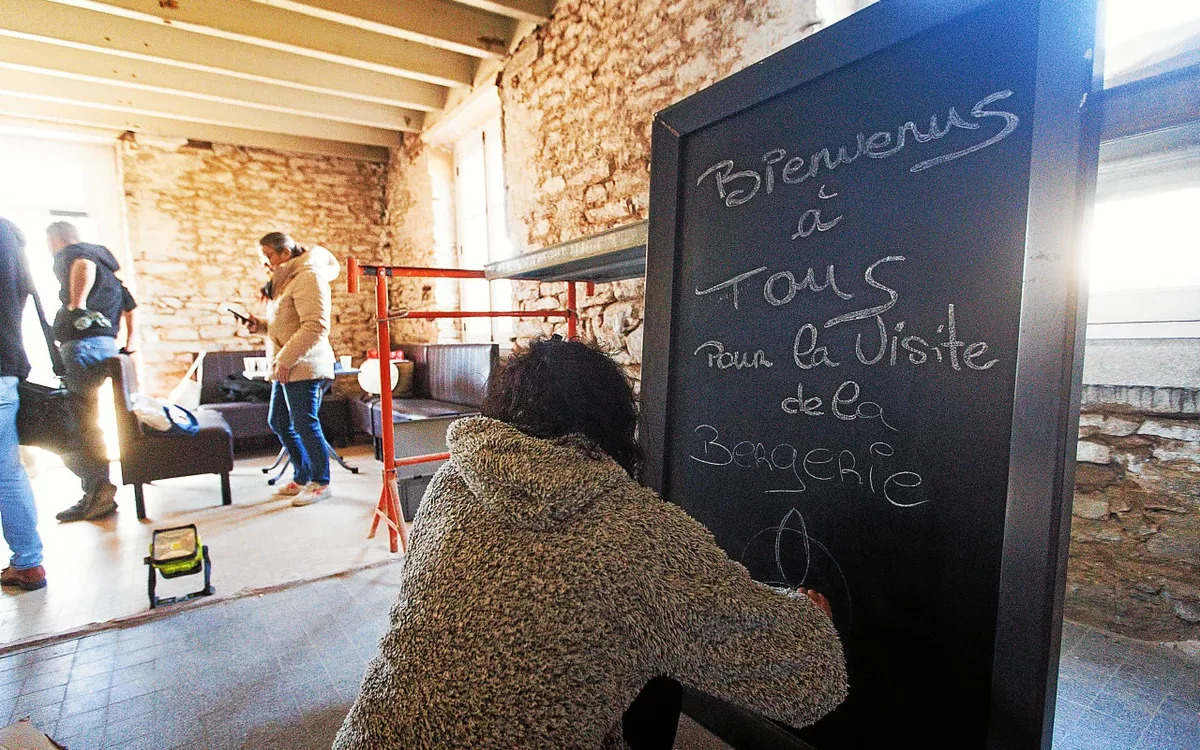 Bienvenus
à
Tous
Pour la Visite
de la
Bergerie